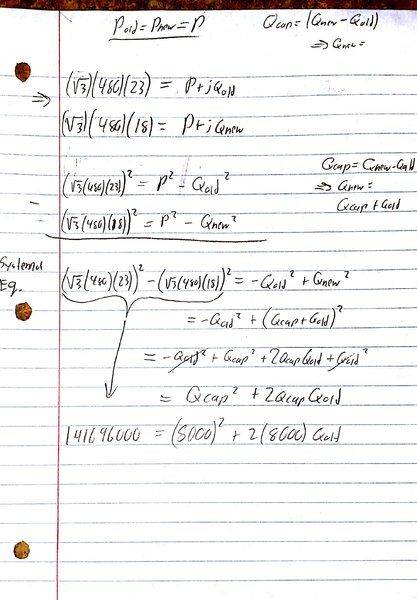 P_old = P_new = P
Q_cap = |Q_new - Q_old|
⇒ Q_new =
⇒ (√3)(480)(23) = P + jQ_old
(√3)(480)(18) = P + jQ_new
Q_cap = Q_new - Q_old
⇒ Q_new =
Q_cap + Q_old
(√3(480)(23))² = P² - Q_old²
- (√3(480)(18))² = P² - Q_new²
Eq.
(√3(480)(23))² - (√3(480)(18))² = -Q_old² + Q_new²
= -Q_old² + (Q_cap + Q_old)²
= -Q_old² + Q_cap² + 2Q_cap Q_old + Q_old²
= Q_cap² + 2Q_cap Q_old
141696000 = (8000)² + 2(8000) Q_old